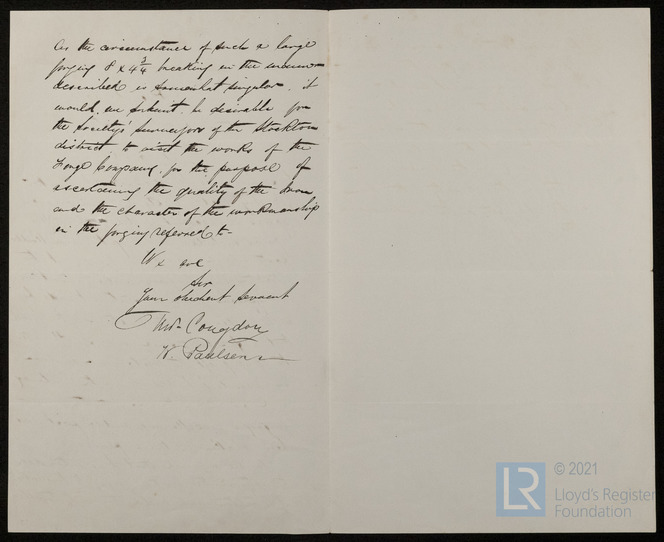 As the circumstance of such a large
forging 8 x 4 3/4 breaking in the manner
described is somewhat singular, it
would, we submit, be desirable for
the Society's Surveyors of the Stockton
district to visit the works of the
Forge Company for the purpose of
ascertaining the quality of the Iron
and the character of the workmanship
in the forging referred to-
We are
Sir
Your obedient Servant
Congdon
Paulsen
LR
© 2021
Lloyd's Register
Foundation